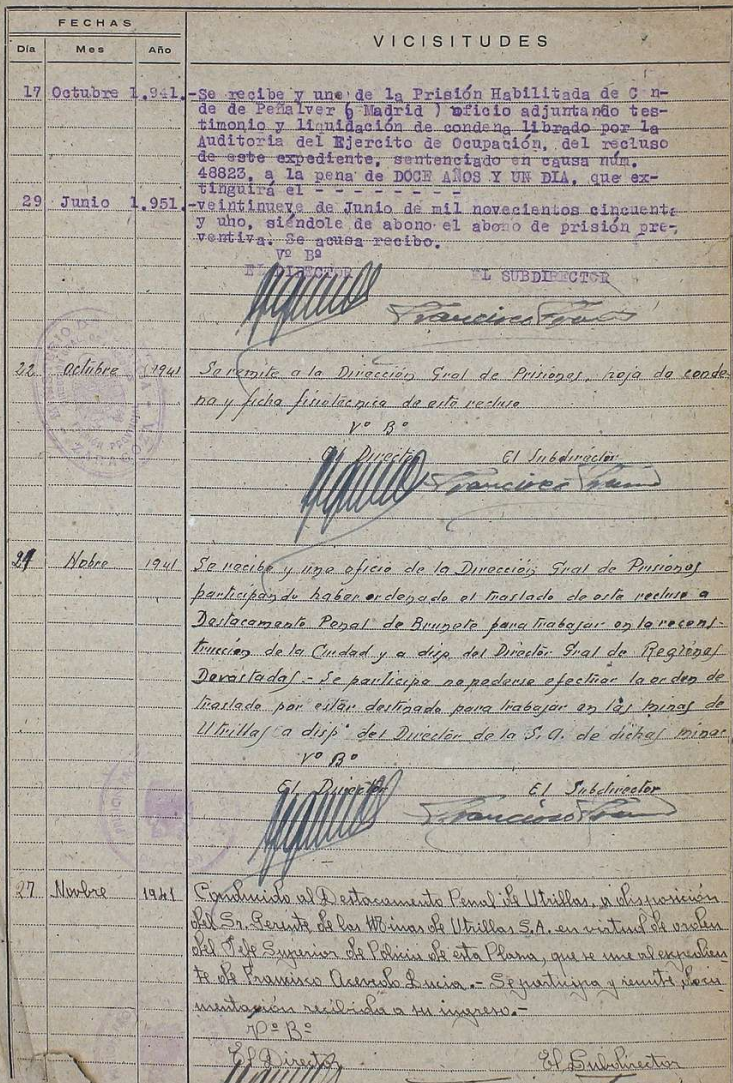 FECHAS
Día Mes Año
VICISITUDES
17 Octubre 1.941.-Se recibe y une de la Prisión Habilitada de C n-
de de Peñalver ( Madrid ) oficio adjuntando tes-
timonio y liquidación de condena librado por la
Auditoria del Ejercito de Ocupación, del recluso
de este expediente, sentenciado en causa núm.
48823, a la pena de DOCE AÑOS Y UN DIA, que ex-
tinguirá el - - - - - - - -
29 Junio 1.951.-veintinueve de Junio de mil novecientos cincuenta
y uno, siéndole de abono el abono de prisión pre-
ventiva. Se acusa recibo.
Vº Bº
EL DIRECTOR EL SUBDIRECTOR
Francisco
22 octubre 1941 Se remite a la Dirección Gral de Prisiones, hoja de conde-
na y ficha fisiotécnica de este recluso
Vº Bº
El Director El Subdirector
Francisco
ZARAGOZA
24 Nobre 1941 Se recibe y une oficio de la Dirección Gral de Prisiones
participando haber ordenado el traslado de este recluso a
Destacamento Penal de Brunete para trabajar en la recons-
trucción de la Ciudad y a disp. del Director Gral de Regiones
Devastadas - Se participa no poderse efectuar la orden de
traslado por estar destinado para trabajar en las minas de
Utrillas a disp. del Director de la S.A. de dichas minas
Vº Bº
El Director El Subdirector
Francisco
27 Novbre 1941 Conducido al Destacamento Penal de Utrillas, a disposición
del Sr. Gerente de las Minas de Utrillas S.A. en virtud de orden
del Jefe Superior de Policia de esta Plaza, que se une al expedien-
te de Francisco Acevedo Lucia.- Se participa y remite, docu-
mentación recibida a su ingreso.-
Vº Bº
El Director El Subdirector